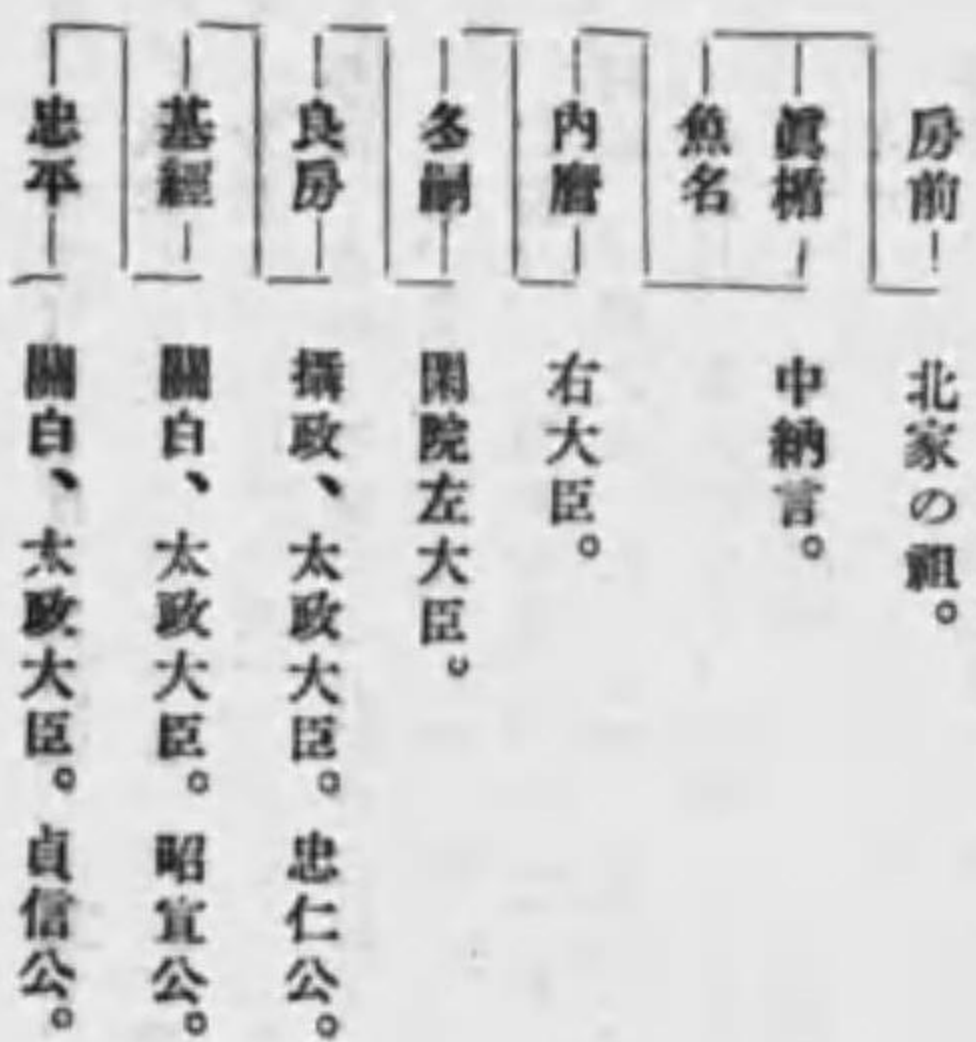 房前 北家の祖。
眞楯 中納言。
魚名
內麿 右大臣。
冬嗣 閑院左大臣。
良房 攝政、太政大臣。忠仁公。
基經 關白、太政大臣。昭宣公。
忠平 關白、太政大臣。貞信公。